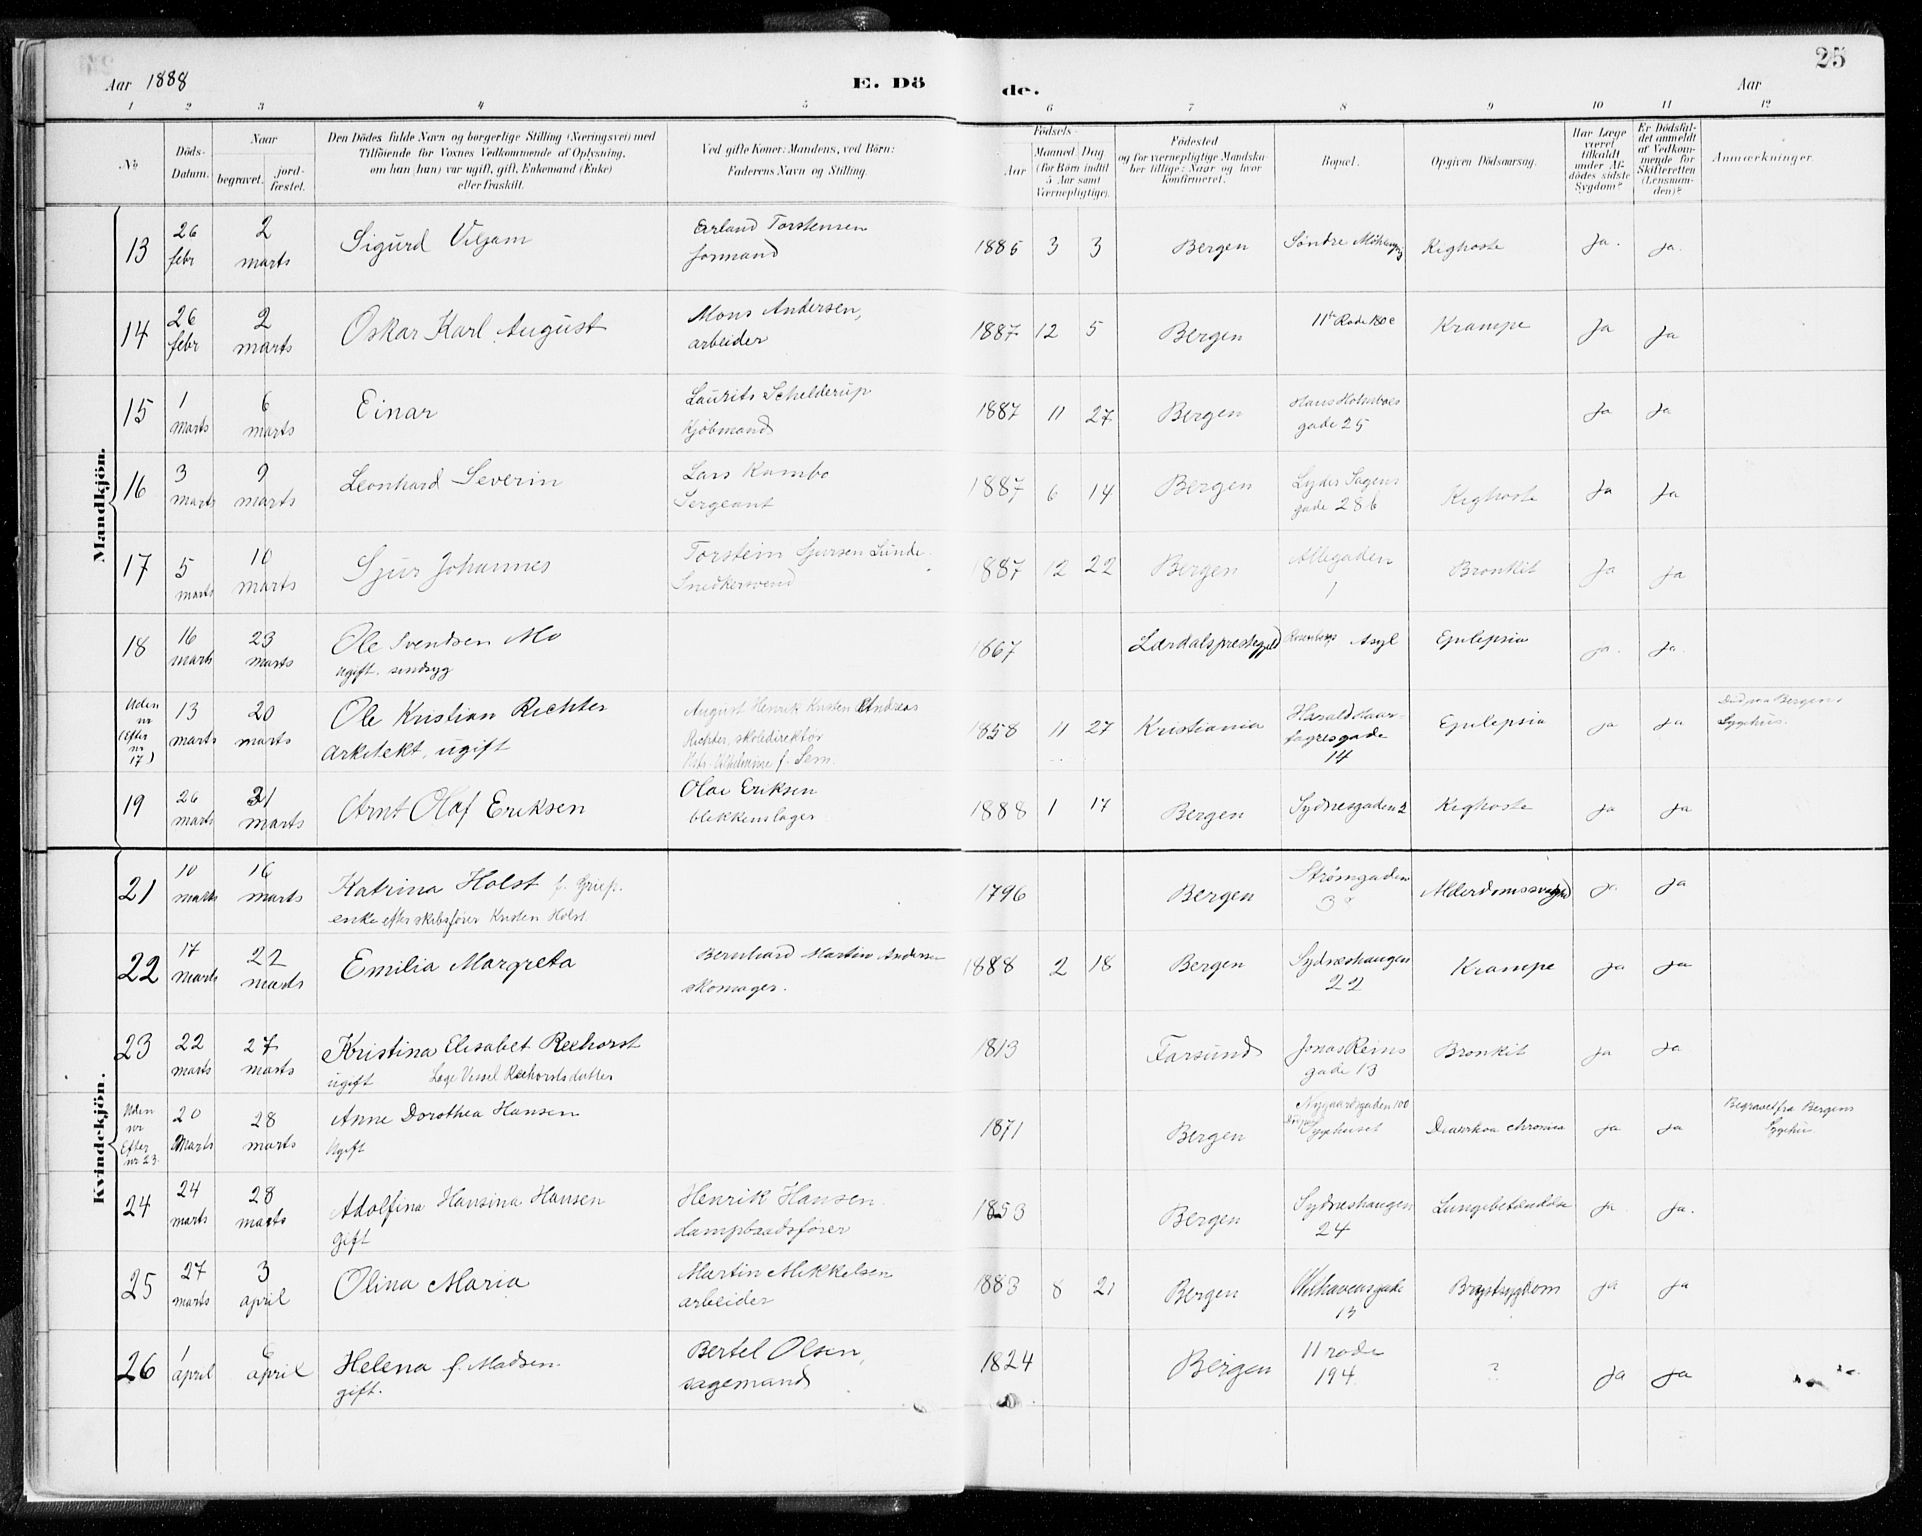 25
Aar 1888
E. Dö de.
Aar
1 2 3 4 5 6 7 8 9 10 11 12
No
Döds-Datum.
Naar
begravet.
jord-fæstet.
Den Dödes fulde Navn og borgerlige Stilling (Næringsvei) med
Tilföiende for Voxnes Vedkommende af Oplysning,
om han (hun) var ugift, gift, Enkemand (Enke)
eller fraskilt.
Ved gifte Koner: Mandens, ved Börn:
Faderens Navn og Stilling.
Födsels-
Aar
Maaned Dag
(for Börn indtil
5 Aar samt
Værnepligtige).
Födested
og for værnepligtige Mandska-
ber tillige: Naar og hvor
konfirmeret.
Bopæl.
Opgiven Dödsaarsag.
Har Læge
været
tilkaldt
under Af-
dödes sidste
Sygdom?
Er Dödsfal-
det anmeldt
af Vedkom-
mende for
Skifteretten
(Lensman-
den)?
Anmærkninger.
Mandkjön.
13 26 febr 2 marts Sigurd Viljam Erland Torstensen formand 1885 3 3 Bergen Søndre Kighoste Ja. Ja.
14 26 febr 2 marts Oskar Karl August Mons Andersen, arbeider 1887 12 5 Bergen 11te Rode 180 c Krampe Ja Ja
15 1 marts 6 marts Einar Laurits Schelderup Kjöbmand 1887 11 27 Bergen Hans Holmboes gade 25 Ja Ja
16 3 marts 9 marts Leonhard Severin Lars Kambo Sergeant 1887 6 14 Bergen Lyder Sagens gade 28 b Kighoste Ja Ja
17 5 marts 10 marts Sjur Johannes Torstein Sjursen Lunde Snedkersvend 1887 12 22 Bergen Allegaden 1 Bronkit Ja Ja
18 16 marts 23 marts Ole Svendsen Mo ugift. sindsyg 1867 Lærdalsprestegjeld Rosenbergs Asyl Epilepsia ja. Ja.
Uden nr (Efter nr 17) 13 marts 20 marts Ole Kristian Richter arkitekt, ugift August Henrik Kristen Andreas Richter, skoledirektør Wilhelmine f. Sem. 1858 11 27 Kristiania Harald Haarfagresgade 14 Epilepsia ja Ja Død paa Bergens Sygehus.
19 26 marts 31 marts Arnt Olaf Eriksen Olai Eriksen blikkenslager 1888 1 17 Bergen Sydnesgaden 2 Kighoste ja Ja
Kvindekjön.
21 10 marts 16 marts Katrina Holst f. Griep. enke efter skibsfører Kristen Holst 1796 Bergen Strømgaden 3 Alderdomssvaghed ja Ja
22 17 marts 22 marts Emilia Margreta Bernhard Martin Andersen skomager. 1888 2 18 Bergen Sydneshaugen 22 Krampe Ja Ja
23 22 marts 27 marts Kristina Elisabet Reehorst ugift Loge Vessel Reehorsts datter 1813 Farsund Jonas Reins gade 13 Bronkit Ja Ja
Uden nr Efter nr 23. 20 Marts 28 marts Anne Dorothea Hansen Ugift 1871 Bergen Nygaardsgaden 100 Sygehuset Diarrhoa chronica Ja Ja Begravet fra Bergens Sygehus.
24 24 marts 28 marts Adolfina Hansina Hansen gift Henrik Hansen dampbaadsfører 1853 Bergen Sydneshaugen 24 Lungebetændelse Ja Ja.
25 27 marts 3 april Olina Maria Martin Mikkelsen arbeider 1883 8 21 Bergen Welhavensgade 13 Brystsygdom ja Ja
26 1 april 6 april Helena f. Madsen gift. Bertel Olsen, sagemand 1824 Bergen 11 rode 194. ? Ja Ja